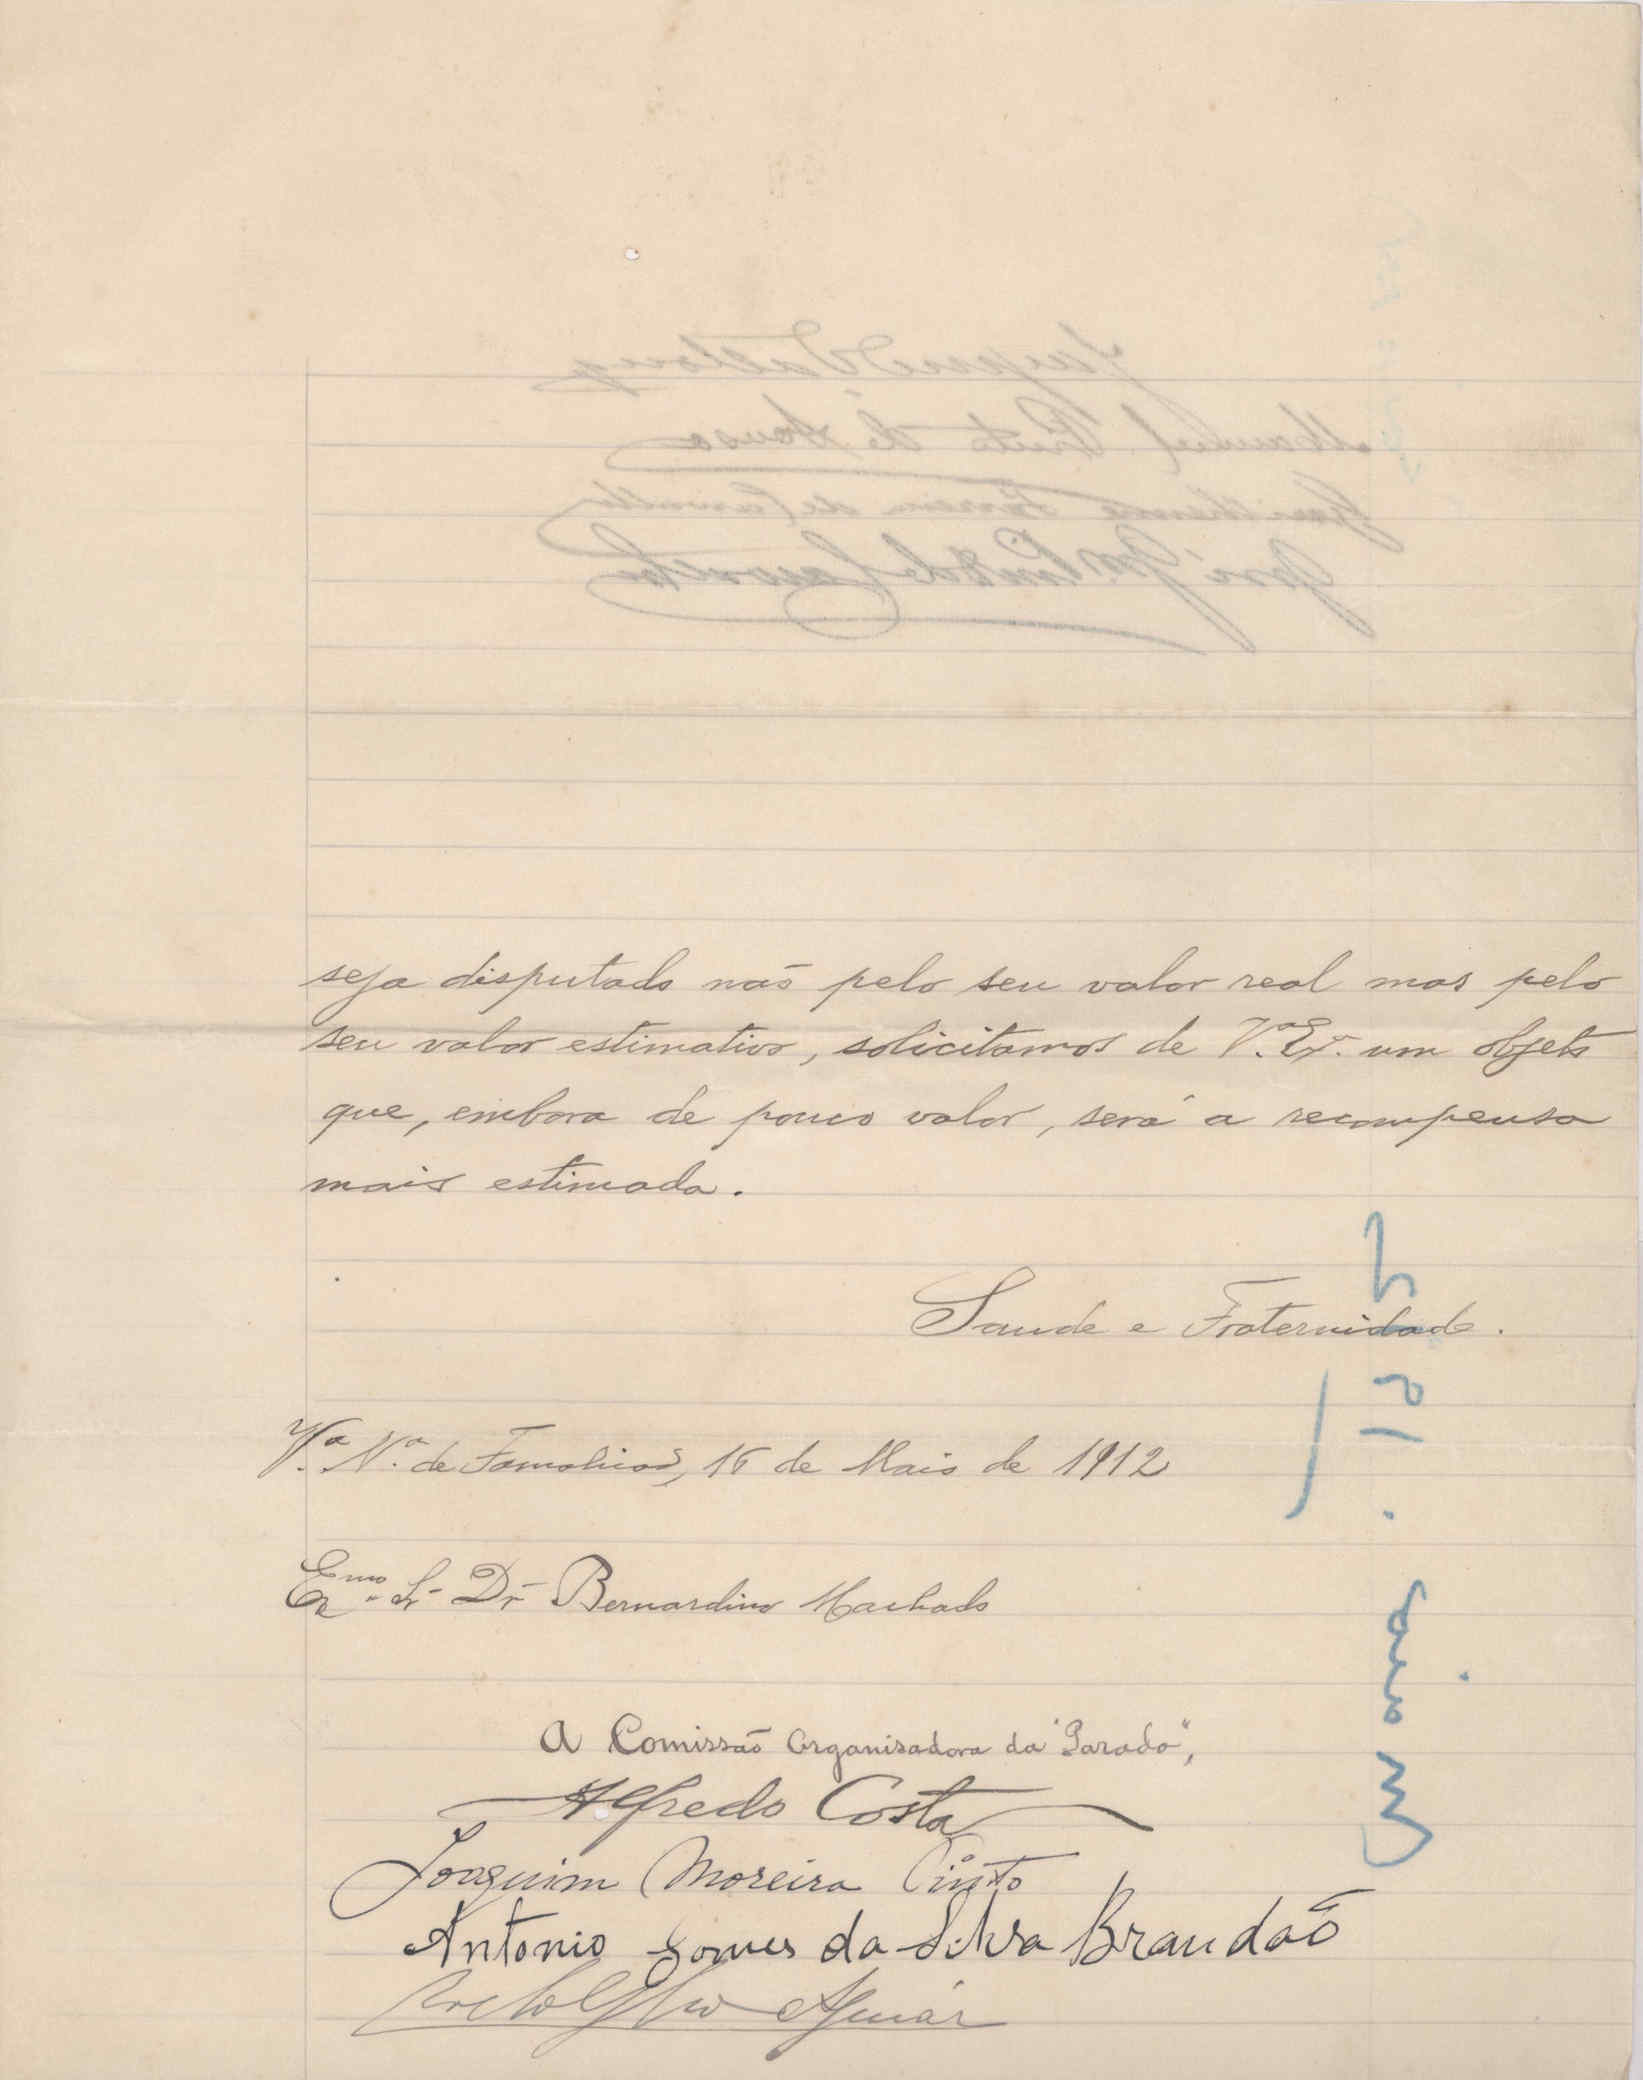 seja disputado não pelo seu valor real mas pelo
seu valor estimativo, solicitamos de V.ª Ex.ª um objeto
que, embora de pouco valor, será a recompensa
mais estimada.
Saude e Fraternidade.
V.ª N.ª de Famalicão, 16 de Maio de 1912
Ex.mo Sr. Dr. Bernardino Machado
A Comissão Organisadora da "Parada",
Alfredo Costa
Joaquim Moreira Pinto
Antonio Gomes da Silva Brandão
Rodolpho Aguiar